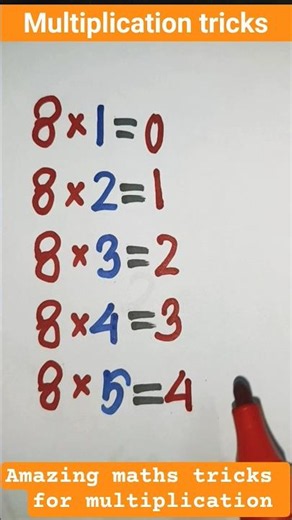 Multiplication tricks
8×1=0
8×2=1
8×3=2
8×4=3
8×5=4
Amazing maths tricks
for multiplication